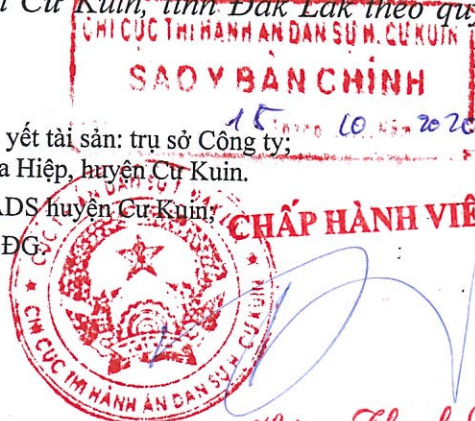 Cư Kuin, tỉnh Đắk Lắk theo quy
CHI CỤC THI HÀNH ÁN DÂN SỰ H. CƯ KUIN
SAO Y BẢN CHÍNH
15 tháng 10 năm 2020
yết tài sản: trụ sở Công ty;
a Hiệp, huyện Cư Kuin.
ADS huyện Cư Kuin;
CHẤP HÀNH VIÊ
ĐG.
CHI CỤC THI HÀNH ÁN DÂN SỰ H. CƯ KUIN